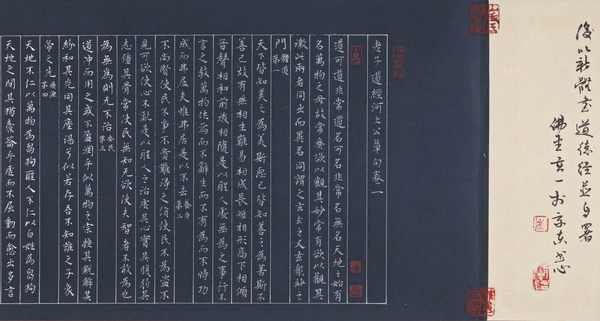 後以新體書道德經並自署
老子道經河上公章句卷一
道可道非常道名可名非常名無名天地之始有
名萬物之母故常無欲以觀其妙常有欲以觀其
徼此兩者同出而異名同謂之玄玄之又玄衆妙之
門 體道第一
天下皆知美之為美斯惡已皆知善之為善斯不
善已故有無相生難易相成長短相形高下相傾
音聲相和前後相隨是以聖人處無為之事行不
言之教萬物作焉而不辭生而不有為而不恃功
成而弗居夫惟弗居是以不去 養身第二
不尚賢使民不爭不貴難得之貨使民不為盜不
見可欲使心不亂是以聖人之治虛其心實其腹弱其
志強其骨常使民無知無欲使夫智者不敢為也
為無為則無不治 安民第三
道沖而用之或不盈淵乎似萬物之宗挫其銳解其
紛和其光同其塵湛兮似若存吾不知誰之子象
帝之先 無源第四
天地不仁以萬物為芻狗聖人不仁以百姓為芻狗
天地之間其猶橐籥乎虛而不屈動而愈出多言